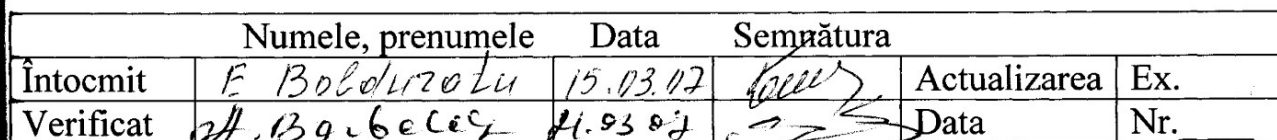 Numele, prenumele Data Semnătura
Întocmit E Bolduratu 15.03.07 Actualizarea Ex.
Verificat Data Nr.